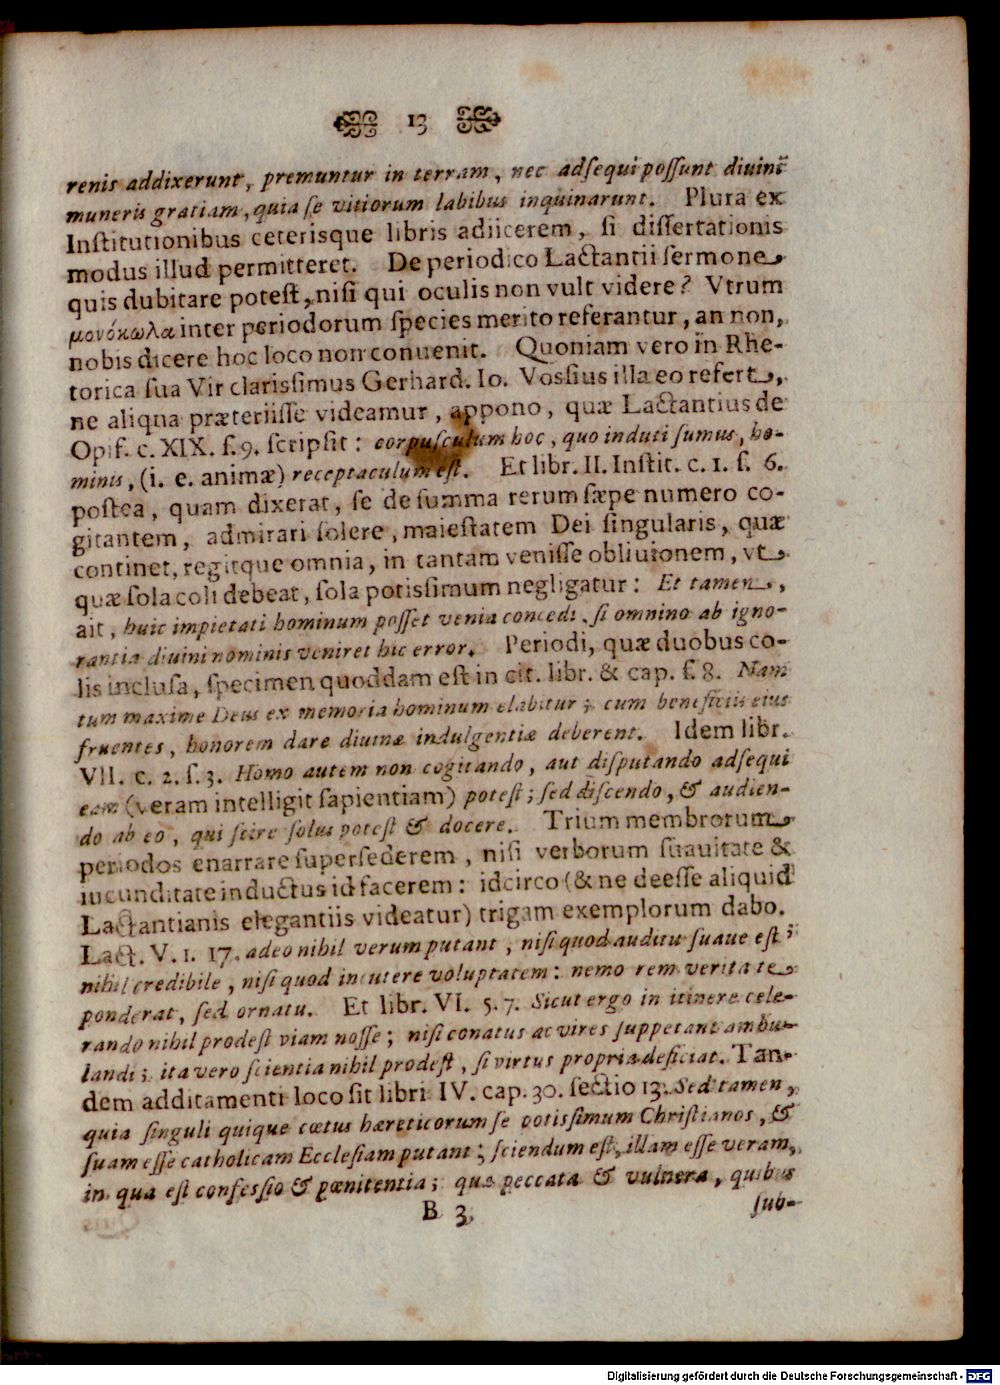 13
renis addixerunt, premuntur in terram, nec adſequi poſſunt diuini
muneris gratiam, quia ſe vitiorum labibus inquinarunt. Plura ex
Inſtitutionibus ceterisque libris adiicerem, ſi diſſertationis
modus illud permitteret. De periodico Lactantii ſermone
quis dubitare poteſt, niſi qui oculis non vult videre? Vtrum
μονόκωλα inter periodorum ſpecies merito referantur, an non,
nobis dicere hoc loco non conuenit. Quoniam vero in Rhe-
torica ſua Vir clarisſimus Gerhard. Io. Vosſius illa eo refert,
ne aliqua præteriiſſe videamur, appono, quæ Lactantius de
Opif. c. XIX. ſ. 9. ſcripſit: corpuſculum hoc, quo induti ſumus, ho-
minis, (i. e. animæ) receptaculum eſt. Et libr. II. Inſtit. c. 1. ſ. 6.
poſtea, quam dixerat, ſe de ſumma rerum ſæpe numero co-
gitantem, admirari ſolere, maieſtatem Dei ſingularis, quæ
continet, regitque omnia, in tantam veniſſe obliuionem, vt
quæ ſola coli debeat, ſola potisſimum negligatur: Et tamen,
ait, huic impietati hominum poſſet venia concedi, ſi omnino ab igno-
rantia diuini nominis veniret hic error. Periodi, quæ duobus co-
lis incluſa, ſpecimen quoddam eſt in cit. libr. & cap. ſ. 8. Nam
tum maxime Deus ex memoria hominum elabitur; cum beneficiis eius
fruentes, honorem dare diuinæ indulgentiæ deberent. Idem libr.
VII. c. 2. ſ. 3. Homo autem non cogitando, aut diſputando adſequi
eam (veram intelligit ſapientiam) poteſt; ſed diſcendo, & audien-
do ab eo, qui ſcire ſolus poteſt & docere. Trium membrorum
periodos enarrare ſuperſederem, niſi verborum ſuauitate &
iucunditate inductus id facerem: idcirco (& ne deeſſe aliquid
Lactantianis elegantiis videatur) trigam exemplorum dabo.
Lact. V. 1. 17. adeo nihil verum putant, niſi quod auditu ſuaue eſt;
nihil credibile, niſi quod incutere voluptatem: nemo rem veritate
ponderat, ſed ornatu. Et libr. VI. 5. 7. Sicut ergo in itinere cele-
rando nihil prodeſt viam noſſe; niſi conatus ac vires ſuppetant ambu-
landi; ita vero ſcientia nihil prodeſt, ſi virtus propria deficiat. Tan-
dem additamenti loco ſit libri IV. cap. 30. ſectio 13. Sed tamen,
quia ſinguli quique cœtus hæreticorum ſe potisſimum Chriſtianos, &
ſuam eſſe catholicam Eccleſiam putant; ſciendum eſt, illam eſſe veram,
in qua eſt confesſio & pœnitentia; quæ peccata & vulnera, quibus
B 3 ſub-
Digitalisierung gefördert durch die Deutsche Forschungsgemeinschaft - DFG